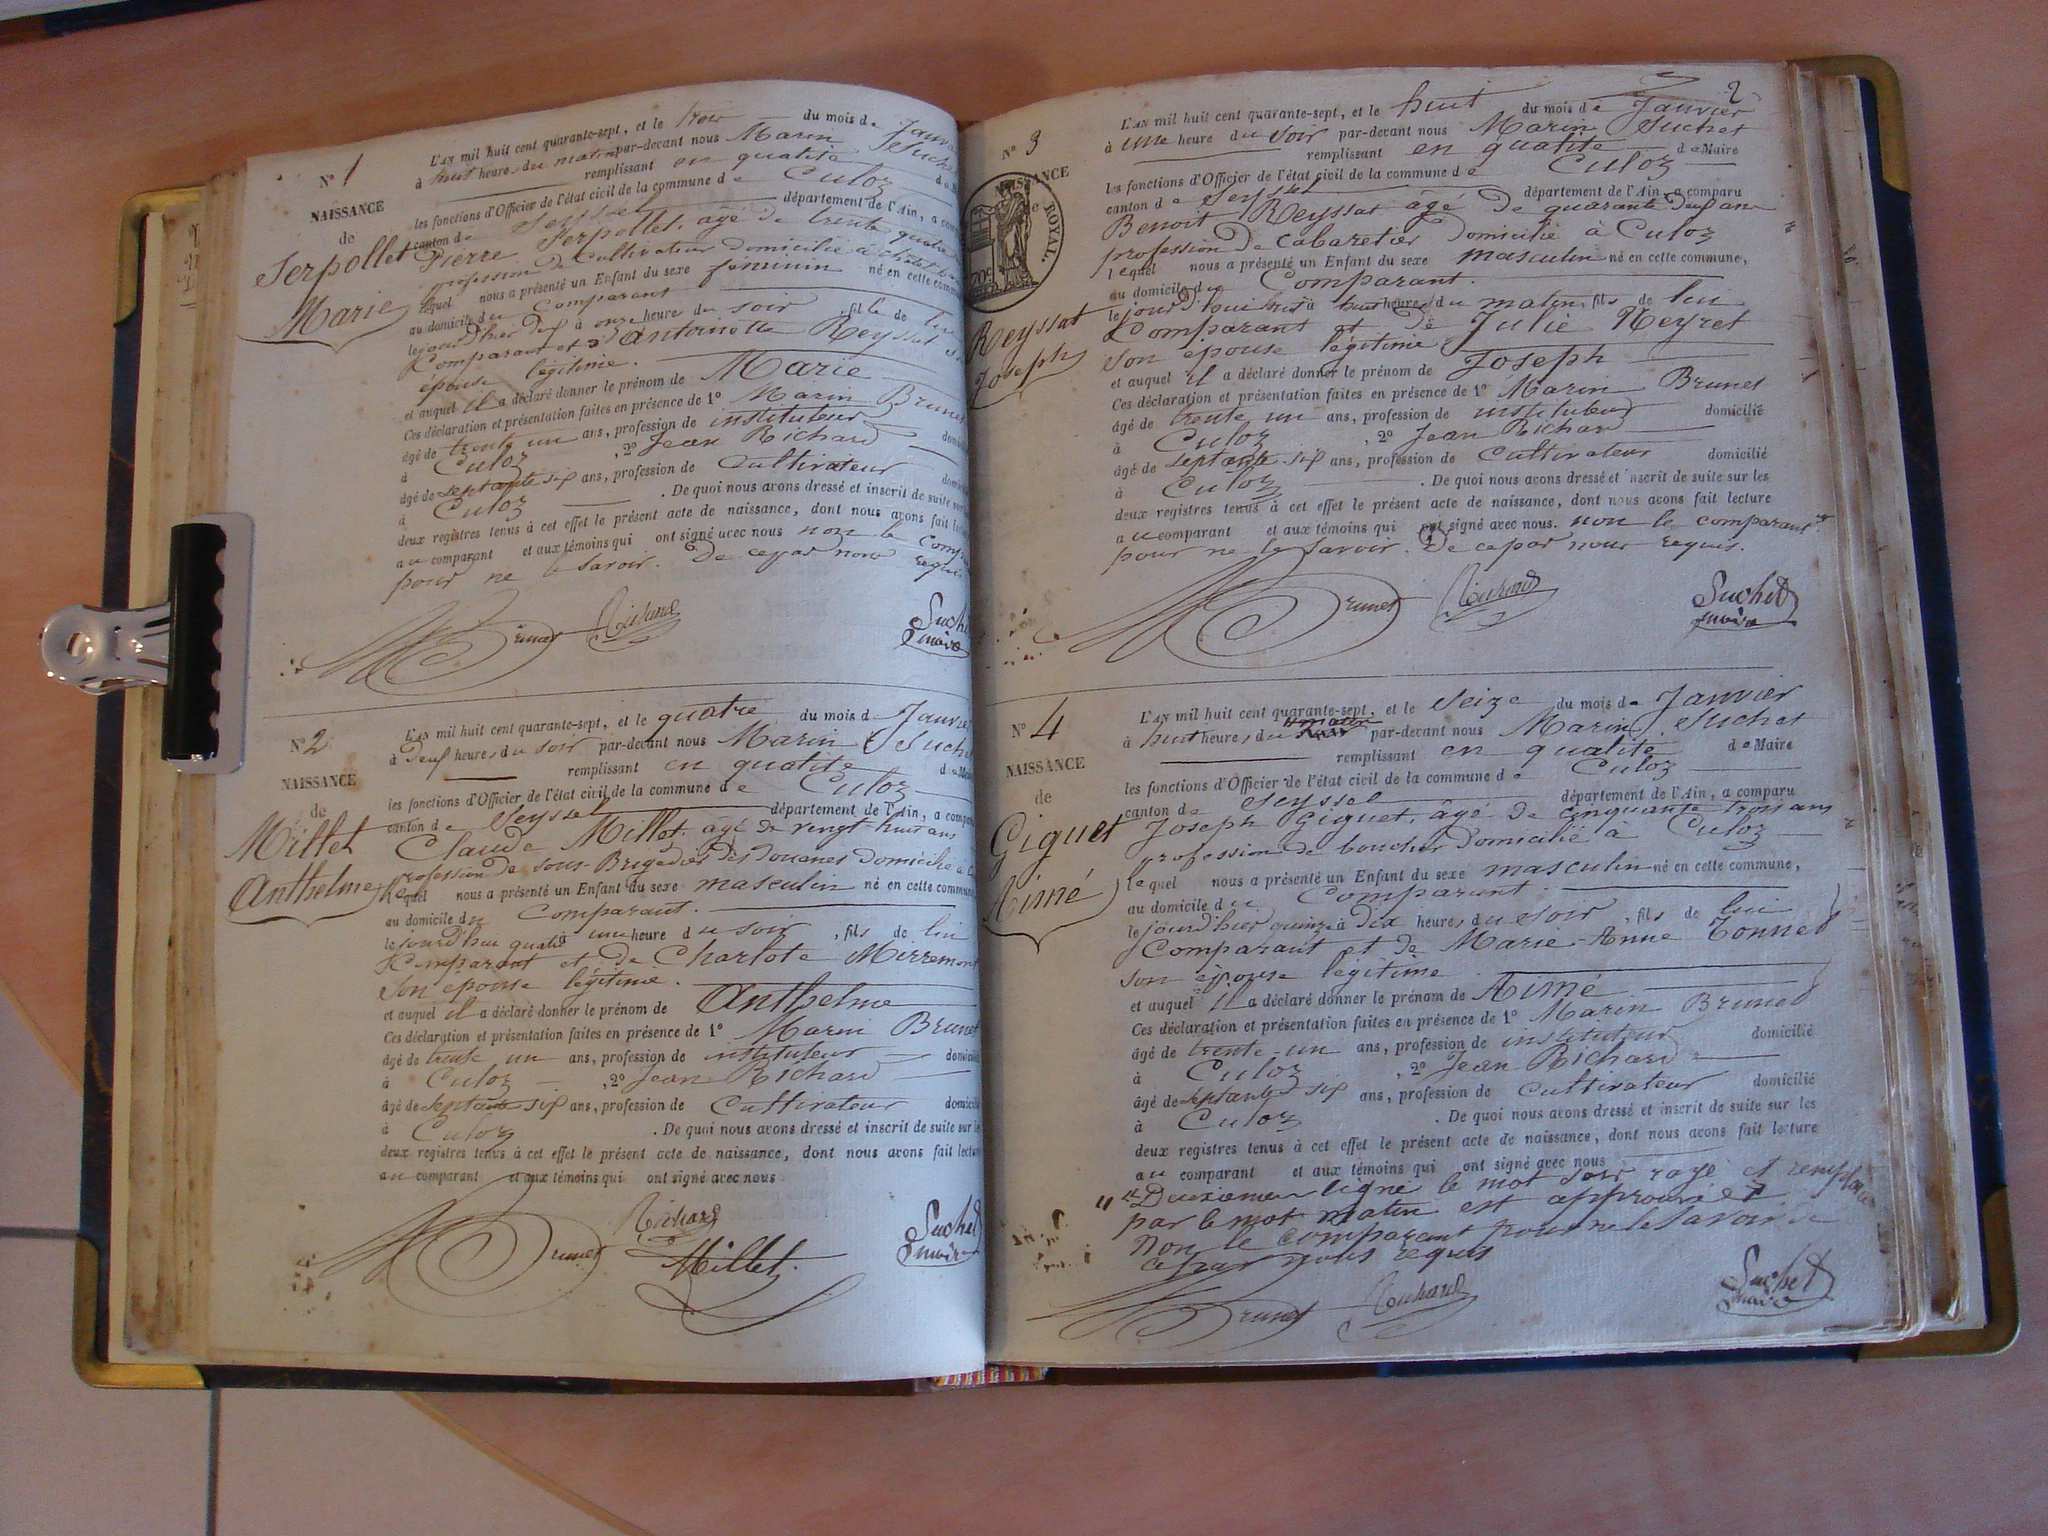 N° 1
NAISSANCE
de
Serpollet
Marie
L'AN mil huit cent quarante-sept, et le trois du mois de Janv
à huit heures du matin par-devant nous Marin Such
remplissant en qualité de M
les fonctions d'Officier de l'état civil de la commune de Culoz
canton de Seyssel département de l'Ain, a com
Pierre Serpollet, âgé de trente quatre
profession de Cultivateur domicilié à
lequel nous a présenté un Enfant du sexe féminin né en cette comm
au domicile du Comparant
le jour d'hier deux à onze heure du soir, fille de lui
Comparant et d'Antoinette Reyssat
épouse légitime.
et auquel il a déclaré donner le prénom de Marie
Ces déclaration et présentation faites en présence de 1° Marin Brunet
âgé de trente un ans, profession de instituteur domi
à Culoz, 2° Jean Richard
âgé de septante six ans, profession de Cultivateur domi
à Culoz. De quoi nous avons dressé et inscrit de suite sur
deux registres tenus à cet effet le présent acte de naissance, dont nous avons fait lec
au comparant et aux témoins qui ont signé avec nous non le comp
pour ne le savoir. De ce par nous requis
Brunet Richard Suchet
maire
N° 2
NAISSANCE
de
Millet
Anthelme
L'AN mil huit cent quarante-sept, et le quatre du mois d Janvier
à deux heures du soir par-devant nous Marin Suchet
remplissant en qualité de Maire
les fonctions d'Officier de l'état civil de la commune de Culoz
canton de Seyssel département de l'Ain, a compa
Claude Millet, âgé de vingt huit ans
profession de sous Brigadier des Douanes domicilié à
lequel nous a présenté un Enfant du sexe masculin né en cette commune
au domicile du Comparant.
le jourd'hui quatre à une heure du soir, fils de lui
Comparant et de Charlote Mirremont
son épouse légitime.
et auquel il a déclaré donner le prénom de Anthelme
Ces déclaration et présentation faites en présence de 1° Marin Brunet
âgé de trente un ans, profession de instituteur domicilié
à Culoz, 2° Jean Richard
âgé de septante six ans, profession de Cultivateur domicilié
à Culoz. De quoi nous avons dressé et inscrit de suite sur les
deux registres tenus à cet effet le présent acte de naissance, dont nous avons fait lecture
au comparant et aux témoins qui ont signé avec nous
Brunet Richard Suchet
Millet maire
2
N° 3
NAISSANCE
ROYAL.
Reyssat
Joseph
L'AN mil huit cent quarante-sept, et le huit du mois de Janvier
à une heure du soir par-devant nous Marin Suchet
remplissant en qualité de Maire
les fonctions d'Officier de l'état civil de la commune de Culoz
canton de Seyssel département de l'Ain, a comparu
Benoit Reyssat âgé de quarante deux ans
profession de cabaretier domicilié à Culoz
lequel nous a présenté un Enfant du sexe masculin né en cette commune,
au domicile du Comparant.
le jourd'hui huit à huit heures du matin, fils de lui
Comparant et de Julie Neyret
son épouse légitime
et auquel il a déclaré donner le prénom de Joseph
Ces déclaration et présentation faites en présence de 1° Marin Brunet
âgé de trente un ans, profession de instituteur domicilié
à Culoz, 2° Jean Richard
âgé de septante six ans, profession de Cultivateur domicilié
à Culoz. De quoi nous avons dressé et inscrit de suite sur les
deux registres tenus à cet effet le présent acte de naissance, dont nous avons fait lecture
au comparant et aux témoins qui ont signé avec nous. non le comparant
pour ne le savoir. De ce par nous requis.
Brunet Richard Suchet
maire
N° 4
NAISSANCE
de
Giguet
Aimé
L'AN mil huit cent quarante-sept, et le seize du mois de Janvier
matin
à huit heures du soir par-devant nous Marin Suchet
remplissant en qualité de Maire
les fonctions d'Officier de l'état civil de la commune de Culoz
canton de Seyssel département de l'Ain, a comparu
Joseph Giguet, âgé de cinquante trois ans
profession de boucher domicilié à Culoz
lequel nous a présenté un Enfant du sexe masculin né en cette commune,
au domicile du Comparant.
le jourd'hier quinze à dix heures du soir, fils de lui
Comparant et de Marie-Anne Tonnet
son épouse légitime
et auquel il a déclaré donner le prénom de Aimé
Ces déclaration et présentation faites en présence de 1° Marin Brunet
âgé de trente-un ans, profession de instituteur domicilié
à Culoz, 2° Jean Richard
âgé de septante six ans, profession de Cultivateur domicilié
à Culoz. De quoi nous avons dressé et inscrit de suite sur les
deux registres tenus à cet effet le présent acte de naissance, dont nous avons fait lecture
au comparant et aux témoins qui ont signé avec nous
Deuxième ligne le mot soir rayé et remplacé
par le mot matin est approuvé et
Non le comparant pour ne le savoir de
ce par nous requis
Brunet Richard Suchet
maire